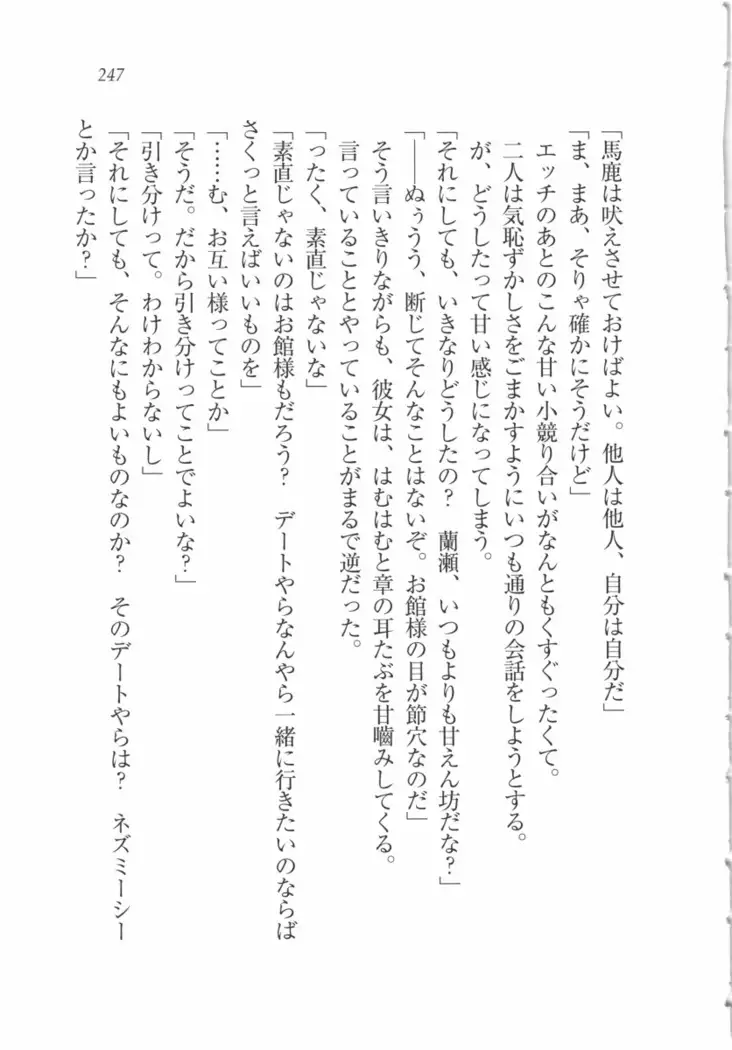 247
「馬鹿は吠えさせておけばよい。他人は他人、自分は自分だ」
「ま、まあ、そりゃ確かにそうだけど」
エッチのあとのこんな甘い小競り合いがなんともくすぐったくて。
二人は気恥ずかしさをごまかすようにいつも通りの会話をしようとする。
が、どうしたって甘い感じになってしまう。
「それにしても、いきなりどうしたの？　蘭瀬、いつもよりも甘えん坊だな？」
「――ぬぅうう、断じてそんなことはないぞ。お館様の目が節穴なのだ」
そう言いきりながらも、彼女は、はむはむと章の耳たぶを甘嚙みしてくる。
言っていることとやっていることがまるで逆だった。
「ったく、素直じゃないな」
「素直じゃないのはお館様もだろう？　デートやらなんやら一緒に行きたいのならば
さくっと言えばいいものを」
「……む、お互い様ってことか」
「そうだ。だから引き分けってことでよいな？」
「引き分けって。わけわからないし」
「それにしても、そんなにもよいものなのか？　そのデートやらは？　ネズミーシー
とか言ったか？」